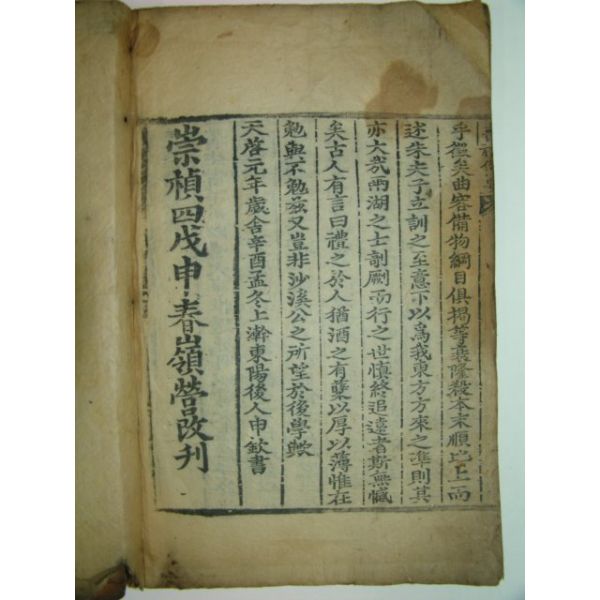 乎徑矣曲容備物綱目俱揭等衰隆殺本末順比上而
述朱夫子立訓之至意下以爲我東方方來之準則其
亦大哉兩湖之士剞劂而行之世愼終追遠者斯無憾
矣古人有言曰禮之於人猶酒之有櫱以厚以薄惟在
勉與不勉玆又豈非沙溪公之所望於後學歟
天啓元年歲舍辛酉孟冬上澣東陽後人申欽書
崇禎四戊申春嶺營改刊